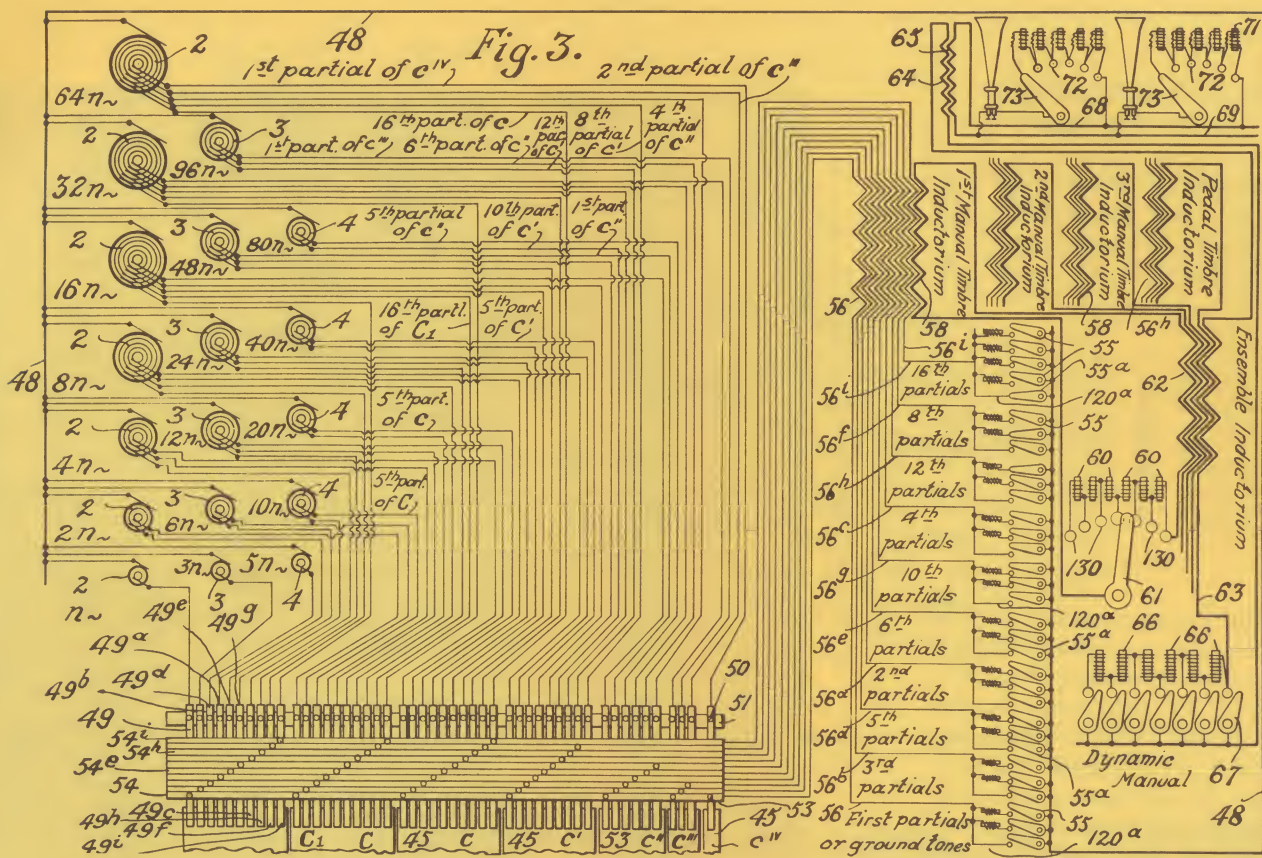 48
Fig. 3.
2
64n~
1st partial of cIV
2nd partial of c'''
2
3
32n~
96n~
16th part. of c
1st part. of c'''
6th part. of c''
12th part. of c'
8th partial of c'
4th partial of c''
2
3
4
16n~
48n~
80n~
5th partial of c''
10th part. of c'
1st part. of c''
2
3
4
8n~
24n~
40n~
16th partl. of C1
5th part. of c'
48
2
3
4
4n~
12n~
20n~
5th part. of c
2
3
4
2n~
6n~
10n~
5th part. of C
2
3
4
n~
3n~
5n~
49e
49g
49a
49d
49b
49
54i
54h
54e
54
50
51
53
49h
49c
49f
49i
C1
C
45
c
45
c'
53
c''
c'''
45
cIV
65
64
71
72
72
73
73
68
69
1st Manual Timbre
Inductorium
2nd Manual Timbre
Inductorium
3rd Manual Timbre
Inductorium
Pedal Timbre
Inductorium
Ensemble Inductorium
56
58
58
56h
62
56i
56i
16th
partials
55
55a
120a
56f
8th
partials
55
56h
12th
partials
56c
4th
partials
56g
10th
partials
120a
56e
6th
partials
55a
56a
2nd
partials
56d
5th
partials
56b
3rd
partials
55a
55
56
First partials
or ground tones
120a
60
60
130
130
61
63
66
66
67
Dynamic
Manual
48